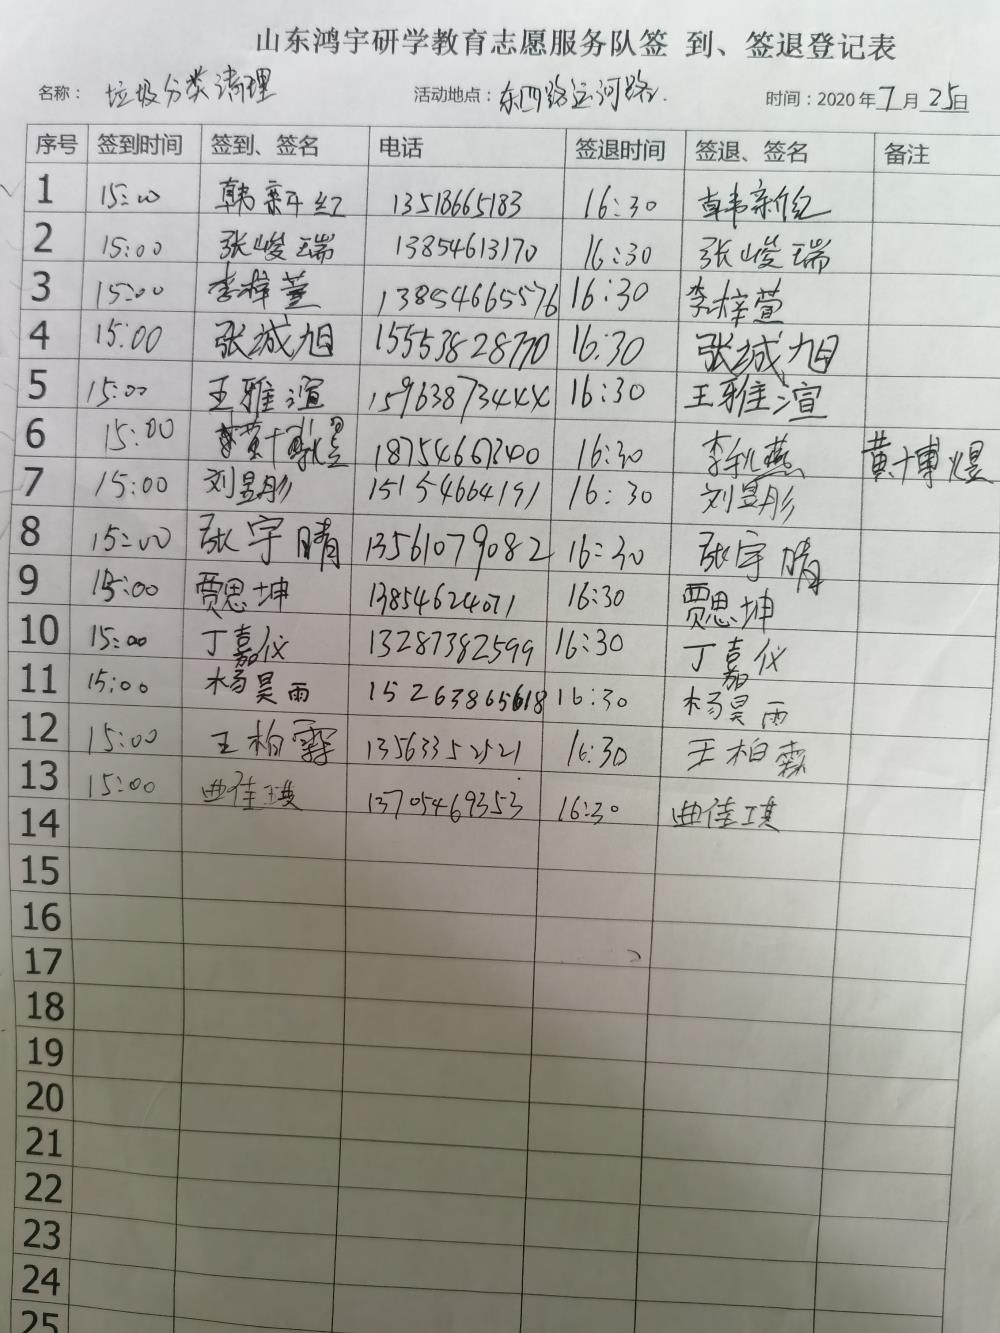 山东鸿宇研学教育志愿服务队签 到、签退登记表
名称： 垃圾分类清理 活动地点：东四路运河路. 时间：2020年7月25日
序号 签到时间 签到、签名 电话 签退时间 签退、签名 备注
1 15:00 韩新红 13518665183 16:30 韩新红
2 15:00 张峻瑞 13854613170 16:30 张峻瑞
3 15:00 李梓萱 13854665576 16:30 李梓萱
4 15:00 张城旭 15553828770 16:30 张城旭
5 15:00 王雅渲 1596387344X 16:30 王雅渲
6 15:00 18754667340 16:30 李秋燕 黄博煜
7 15:00 刘昱彤 15154664191 16:30 刘昱彤
8 15:00 张宇晴 13561079082 16:30 张宇晴
9 15:00 贾思坤 13854624071 16:30 贾思坤
10 15:00 丁嘉仪 13287382599 16:30 丁嘉仪
11 15:00 杨昊雨 15263865618 16:30 杨昊雨
12 15:00 王柏霖 13563352521 16:30 王柏霖
13 15:00 曲佳琪 13705469353 16:30 曲佳琪
14
15
16
17
18
19
20
21
22
23
24
25